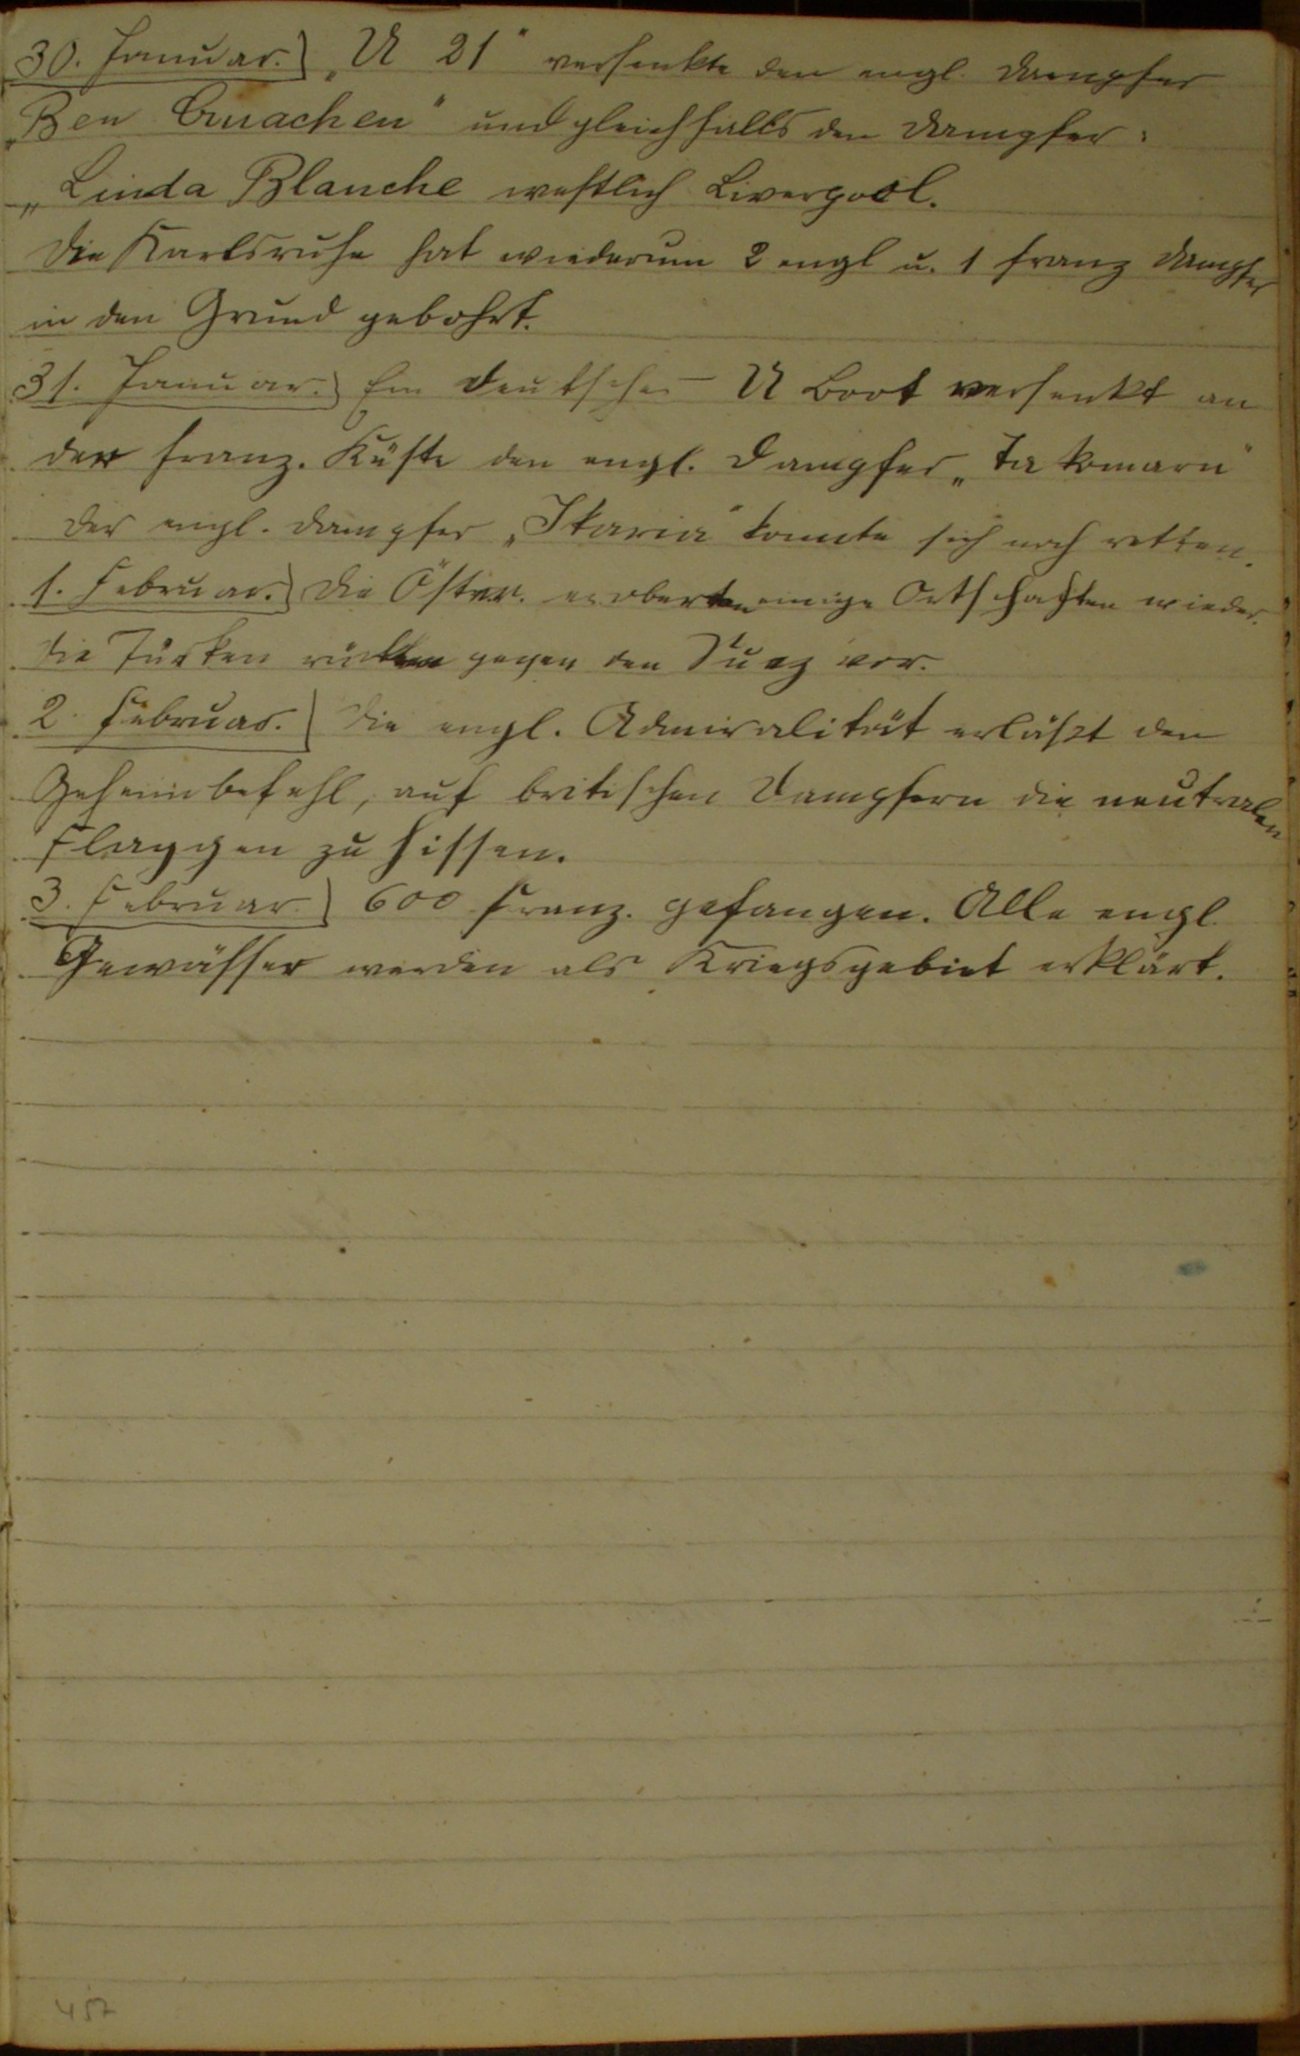 30. Januar.) „U 21“ versenkte den engl. Dampfer
„Ben Cruachen“ und gleichfalls den Dampfer:
„Linda Blanche westlich Liverpool.
Die Karlsruhe hat wiederum 2 engl u. 1 franz Dampfer
in den Grund gebohrt.
31. Januar.) Ein deutsches U Boot versenkt an
der franz. Küste den engl. Dampfer „Takomaru“
der engl. Dampfer „Ikaria“ konnte sich noch retten.
1. Februar.) Die Österr. eroberten einige Ortschaften wieder.
Die Türken rücken gegen den Suez vor.
2. Februar.) Die engl. Admiralität erläßt den
Geheimbefehl, auf britischen Dampfern die neutralen
Flaggen zu hissen.
3. Februar.) 600 Franz. gefangen. Alle engl.
Gewässer werden als Kriegsgebiet erklärt.
457